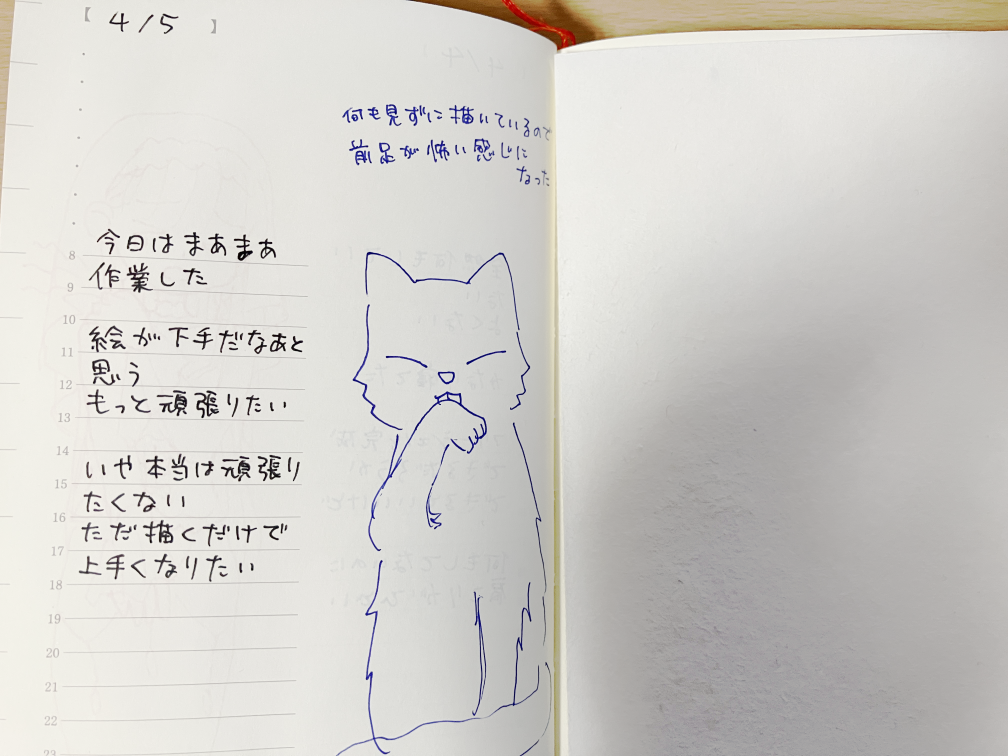 【 4/5 】
何も見ずに描いているので
前足が怖い感じに
なった
8
今日はまあまあ
9
作業した
10
絵が下手だなあと
11
思う
12
もっと頑張りたい
13
14
いや本当は頑張り
15
たくない
16
ただ描くだけで
17
上手くなりたい
18
19
20
21
22
23